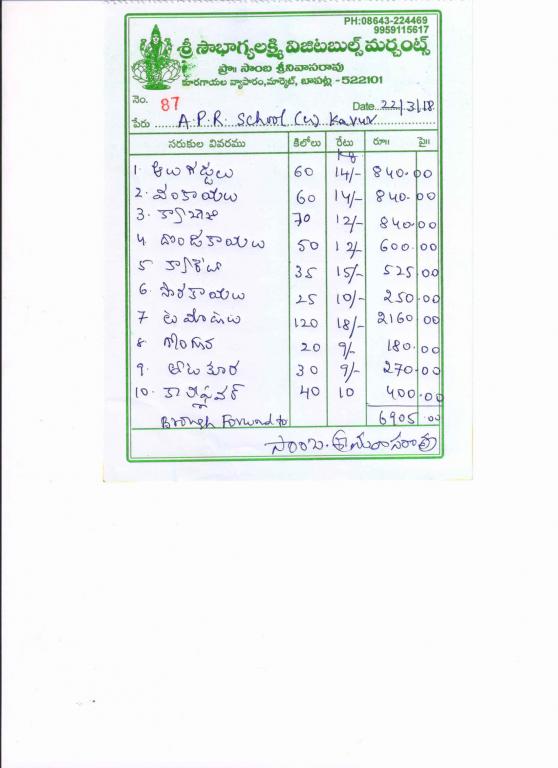 PH:08643-224469
9959115617
శ్రీ సౌభాగ్యలక్ష్మి విజిటబుల్స్ మర్చంట్స్
ప్రొ॥ సాంబ శ్రీనివాసరావు
కూరగాయల వ్యాపారం, మార్కెట్, బాపట్ల - 522101
నెం. 87 Date 22/3/18
పేరు A.P.R. School (G) Kavur
సరుకుల వివరము కిలోలు రేటు రూ॥ పై॥
Kg
1. ఆలుగడ్డలు 60 14/- 840.00
2. వంకాయలు 60 14/- 840.00
3. క్యాబేజి 70 12/- 840.00
4 దొండకాయలు 50 12/- 600.00
5 క్యారెటు 35 15/- 525.00
6. సొరకాయలు 25 10/- 250.00
7 టమోటాలు 120 18/- 2160.00
8. గోంగూర 20 9/- 180.00
9. తోటకూర 30 9/- 270.00
10. కాలిఫ్లవర్ 40 10 400.00
Forward to 6905.00
సాంబ. శ్రీనివాసరావు